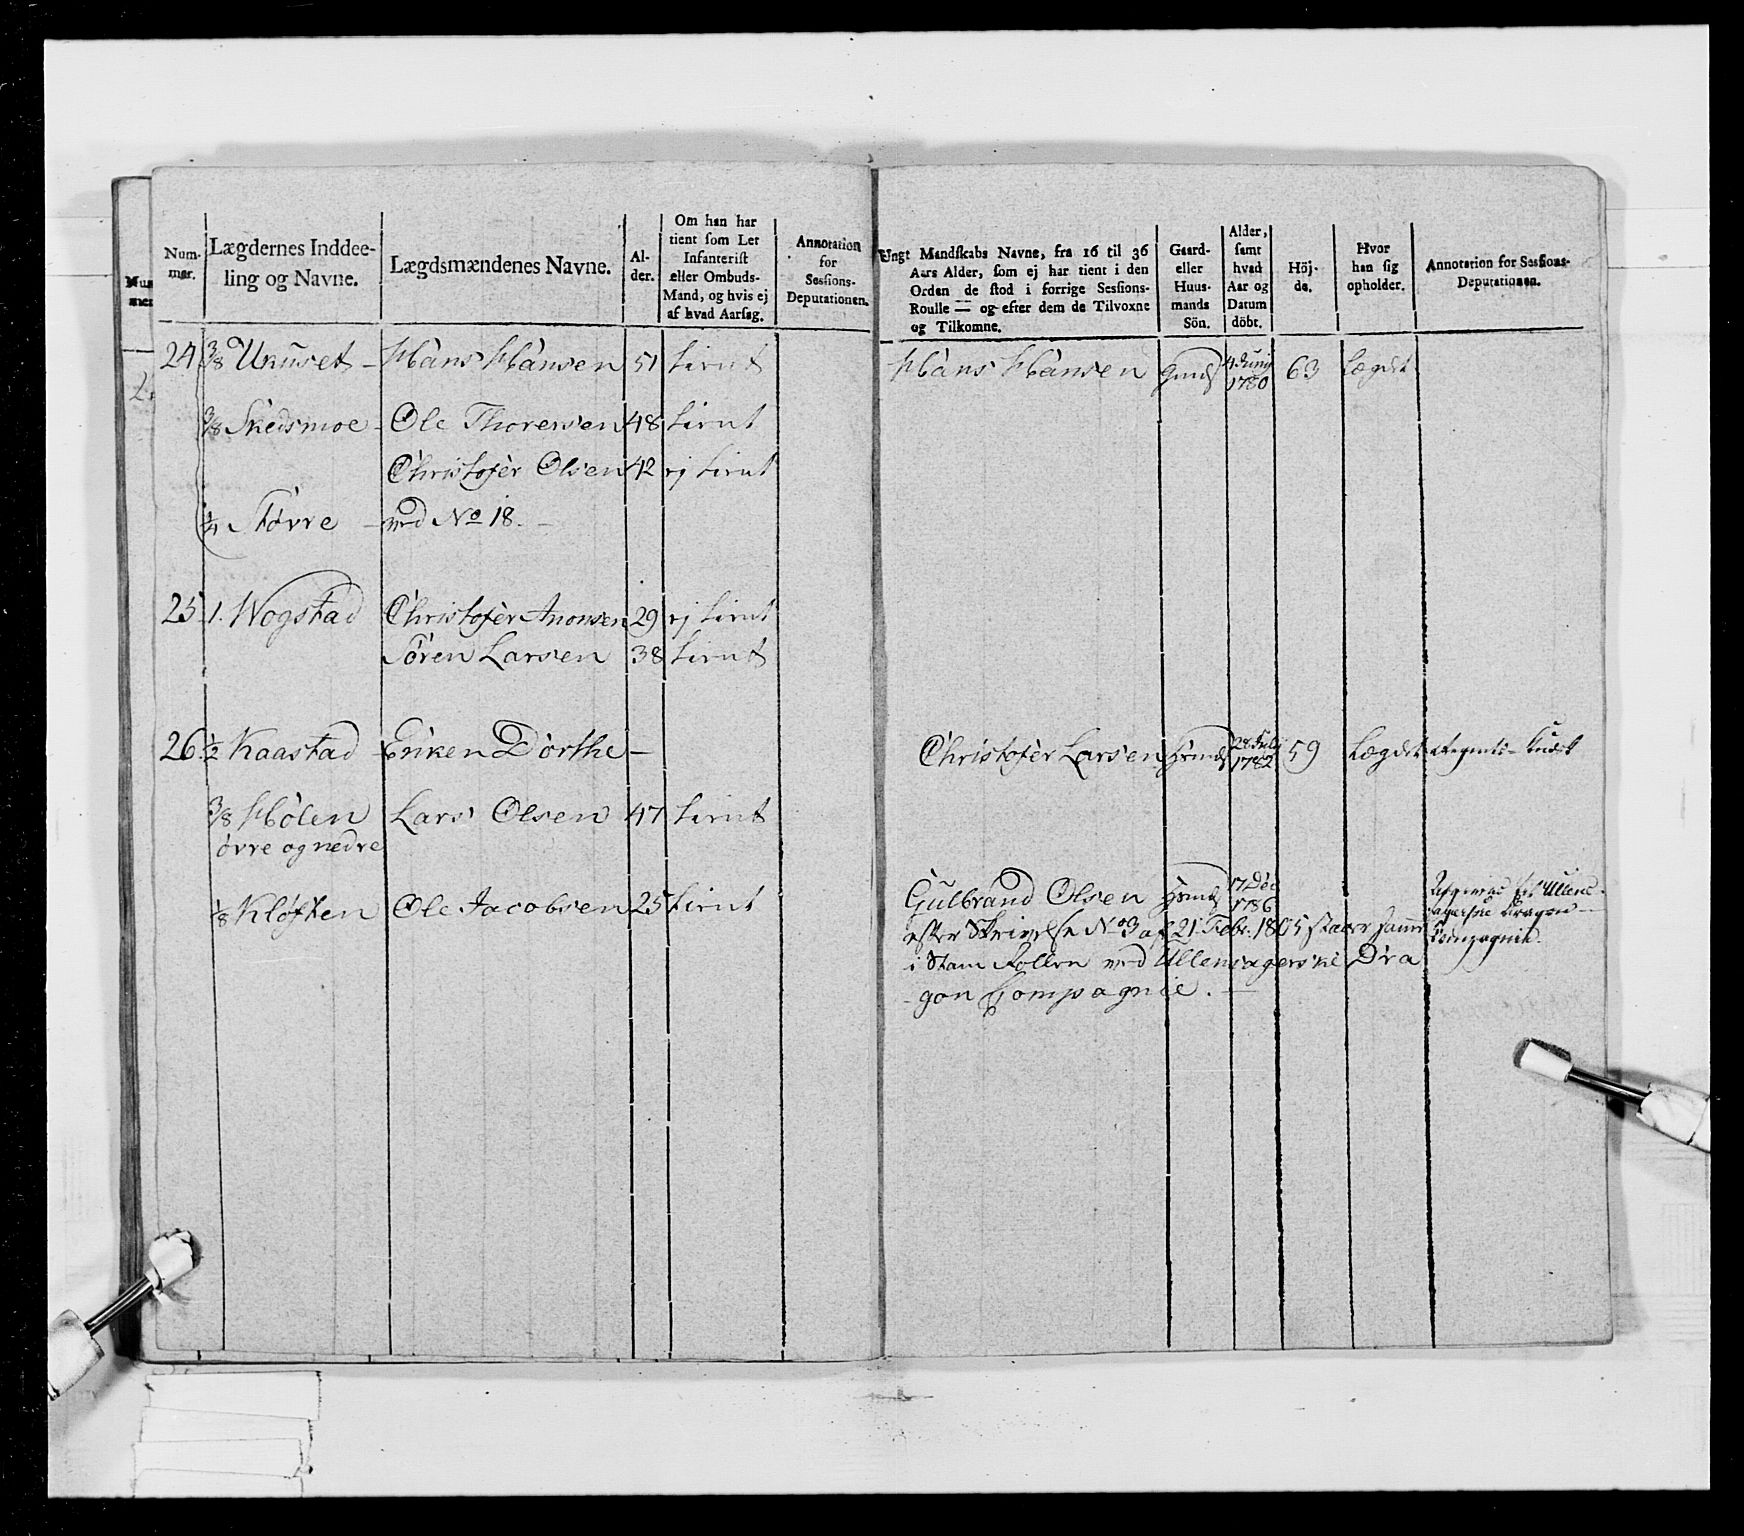 Num-
mer.
Lægdernes Inddee-
ling og Navne.
Lægdsmændenes Navne.
Al-
der.
Om han har
tient som Let
Infanterist
eller Ombuds-
Mand, og hvis ej
af hvad Aarsag.
Annotation
for
Sessions-
Deputationen.
Ungt Mandskabs Navne, fra 16 til 36
Aars Alder, som ej har tient i den
Orden de stod i forrige Sessions-
Roulle — og efter dem de Tilvoxne
og Tilkomne.
Gaard-
eller
Huus-
mands
Sön.
Alder,
samt
hvad
Aar og
Datum
döbt.
Höj-
de.
Hvor
han sig
opholder.
Annotation for Sessions-
Deputationen.
24 3/8 Ukuset - Hans Hansen 51 tient Hans Hansen Gmds 4 Junij 1780 63 Lægdet
3/8 Skedsmoe - Ole Thoresen 48 tient
Christofer Olsen 42 ej tient
1/4 Tørre - ved No 18. -
25 1. Wogstad Christofer Anonsen 29 ej tient
Søren Larsen 38 tient
26. 1/2 Kaastad Enken Dorthe — Christofer Larsen Hsmds 28 Julj 1782 59 Lægdet Regmts- Kudsk
3/8 Hølen Lars Olsen 47 tient
øvre og nedre
1/8 Kløften Ole Jacobsen 25 tient Gulbrand Olsen Hsmds 17 Dec 1786 Afgives til Ullens-
agerske Dragon-
Compagnie.
efter Skrivelse No 3 af 21 Febr. 1805 staaer samme
i Stam Rollen ved Ullensagerske Dra
-gon Compagnie. —